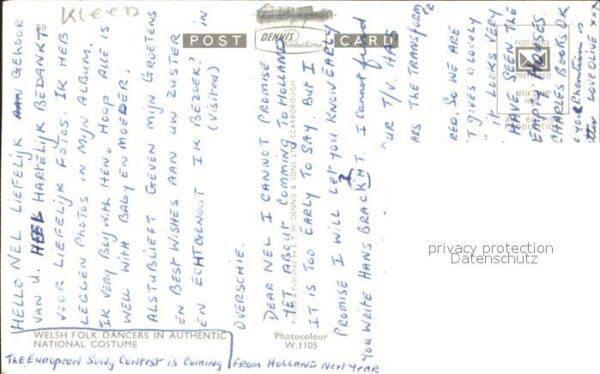 Kleed
HELLO NEL LIEFELIJK AAN GEHOOR
VAN U. HARTELIJK BEDANKT
VOOR LIEFELIJK FOTOS. IK HEB
LEGLEN PHOTOS IN MIJN ALBUM.
IK VERY BLIJ WITH HEN. HOOP ALLE IS
WELL WITH BABY EN MOEDER.
ALSTUBLIEFT GEVEN MIJN GROETENS
EN BEST WISHES AAN UW ZUSTER
EN ECHTGENOOT IK BEZOEK IN
(VISITED)
OVERSCHIE.
POST CARD
DENNIS
Productions
DEAR NEL I CANNOT PROMISE
YET ABOUT COMMING TO HOLLAND
IT IS TOO EARLY TO SAY. BUT I
PROMISE I WILL LET YOU KNOW EARLY
YOU WRITE HANS BRACKHT. I cannot find
UR T/V. HAS
ARS THE TRANSFORM
RED. SO WE ARE
T GIVES A LOVELY
IT LOOKS VERY
HAVE SEEN THE
EMPTY HORSES.
CHARLES BOOTS OK
LOVE OLIVE XXX
POST
AFFIX STAMP
HERE
privacy protection
Datenschutz
WELSH FOLK DANCERS IN AUTHENTIC
NATIONAL COSTUME
Photocolour
W.1105
THE EUROPEAN SONG CONTEST IS COMING FROM HOLLAND NEXT YEAR